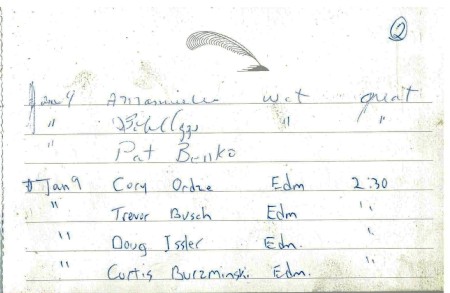 2
Jan 9 wet great
" " "
" Pat Benko
Jan 9 Cory Ordze Edm 2:30
" Trevor Busch Edm "
" Doug Issler Edm. "
" Curtis Burzminski Edm. "